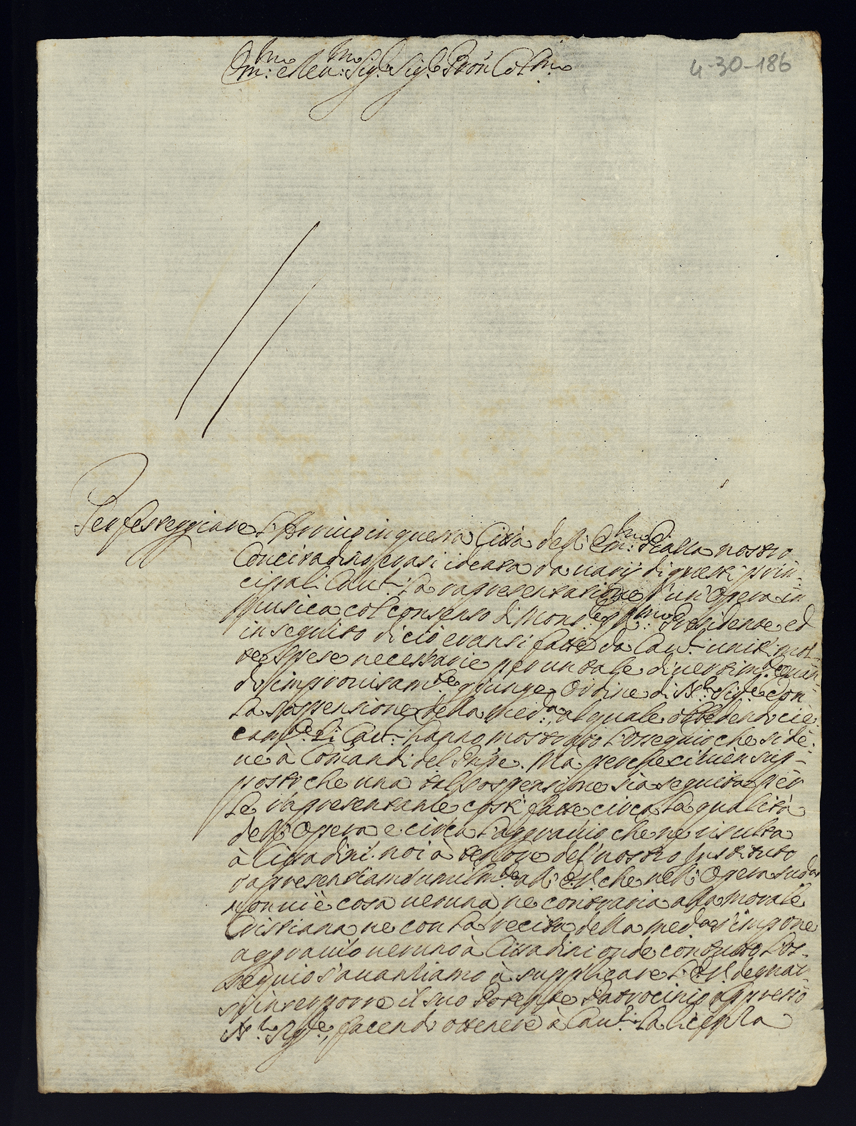 Em:mo e Rev:mo Sig:r Sig:r Pron Col:mo
4-30-186
Per festeggiare l'Arrivo in questa Città dell' Em:mo Pralla nostro
Concittadino erasi ideata da varij di questi prin-
cipali Cau:ri la rapresentazione d'un' Opera in
Musica col consenso di Mons:re Presidente ed
in seguito di ciò eransi fatte da Cau:ri uniti molte
spese necessarie per un tale divertim:to quan-
do improvisam:te giunge Ordine di N:ro Sig:re con
la sospensione della med:ma al quale obbedendo cie-
cam:te li Cau:ri hanno mostrato l'ossequio che si de-
ve à Comandi del Pnpe. Ma perche ci vien sup-
posto che una tal sospensione sia seguita per
le rapresentanze costì fatte circa la qualità
dell' Opera e circa l'aggravio che ne risulta
à Cittadini noi à tenore del nostro Instituto
rapresentiamo umilm:te all' E.V. che nell' Opera sud:a
non vi è cosa veruna ne contraria alla morale
Cristiana ne con la recita della med:ma s'impone
aggravio veruno à Cittadini onde con tutto l'os-
sequio s'avanziamo à supplicare l'E.V. degnar-
si interporre il suo Potente Patrocinio appresso
N:ro Sig:re, facendo ottenere à Cau:ri la licenza